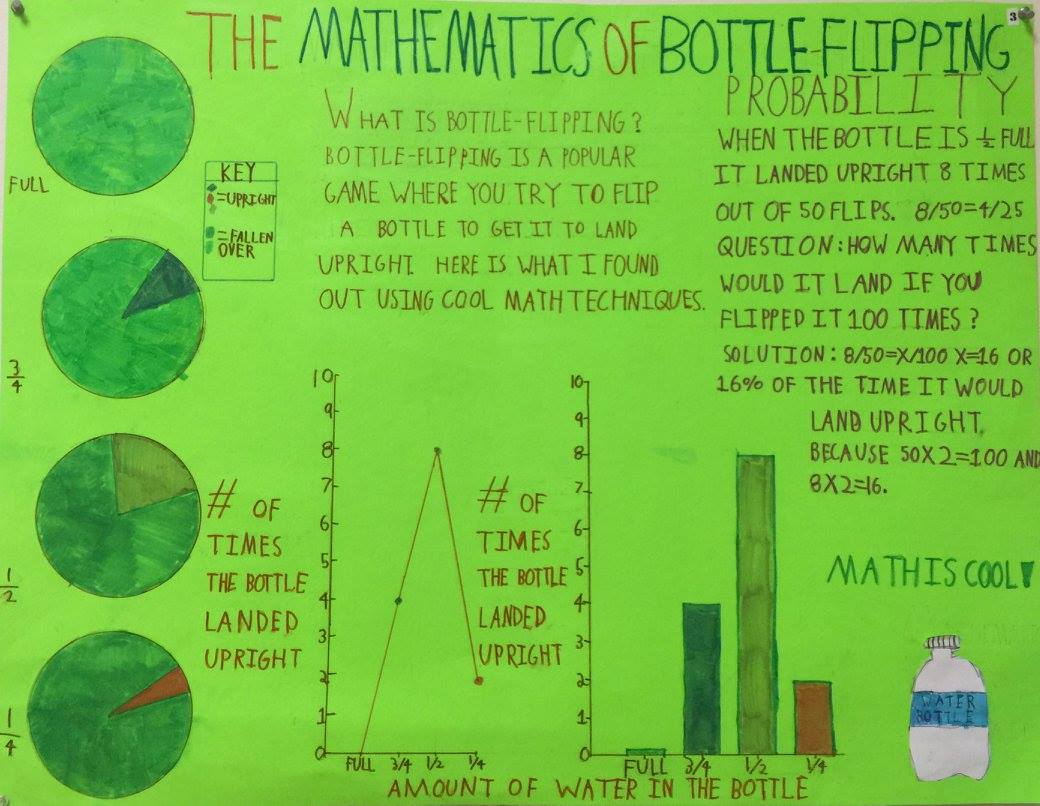 THE MATHEMATICS OF BOTTLE-FLIPPING
3
WHAT IS BOTTLE-FLIPPING?
BOTTLE-FLIPPING IS A POPULAR
GAME WHERE YOU TRY TO FLIP
A BOTTLE TO GET IT TO LAND
UPRIGHT. HERE IS WHAT I FOUND
OUT USING COOL MATH TECHNIQUES.
PROBABILITY
WHEN THE BOTTLE IS ½ FULL
IT LANDED UPRIGHT 8 TIMES
OUT OF 50 FLIPS. 8/50=4/25
QUESTION: HOW MANY TIMES
WOULD IT LAND IF YOU
FLIPPED IT 100 TIMES?
SOLUTION: 8/50=X/100 X=16 OR
16% OF THE TIME IT WOULD
LAND UPRIGHT.
BECAUSE 50X2=100 AND
8X2=16.
MATH IS COOL!
WATER
BOTTLE
KEY
=UPRIGHT
=FALLEN
OVER
FULL
3/4
1/2
1/4
# OF
TIMES
THE BOTTLE
LANDED
UPRIGHT
10
9
8
7
6
5
4
3
2
1
0
FULL 3/4 1/2 1/4
# OF
TIMES
THE BOTTLE
LANDED
UPRIGHT
10
9
8
7
6
5
4
3
2
1
0
FULL 3/4 1/2 1/4
AMOUNT OF WATER IN THE BOTTLE